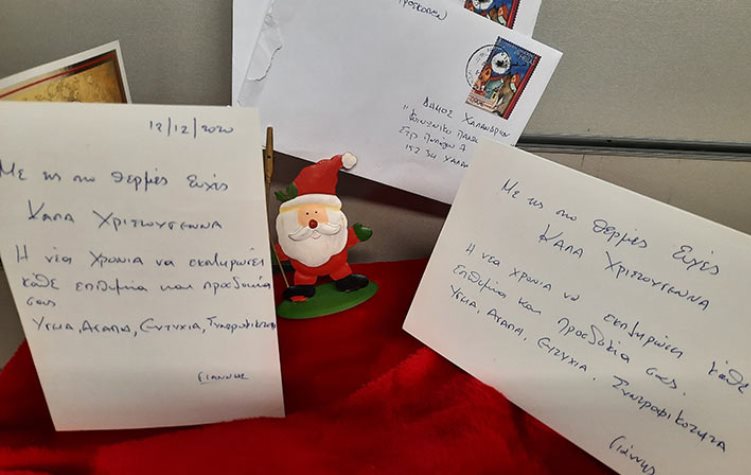 ΠΡΟΣΚΟΠΩΝ
ΔΗΜΟΣ ΧΑΛΑΝΔΡΙΟΥ
152 34 ΧΑΛΑΝ
12/12/2020
Με τις πιο θερμές Ευχές
ΚΑΛΑ ΧΡΙΣΤΟΥΓΕΝΝΑ
Η νέα ΧΡΟΝΙΑ να εκπληρώσει
κάθε επιθυμία και προσδοκία
σας
ΥΓΕΙΑ, ΑΓΑΠΗ, ΕΥΤΥΧΙΑ, Συντροφικότητα
ΓΙΑΝΝΗΣ
Με τις πιο θερμές Ευχές
ΚΑΛΑ ΧΡΙΣΤΟΥΓΕΝΝΑ
Η νέα χρονιά να εκπληρώσει κάθε
επιθυμία και Προσδοκία σας.
ΥΓΕΙΑ, ΑΓΑΠΗ, ΕΥΤΥΧΙΑ, Συντροφικότητα
Γιάννης